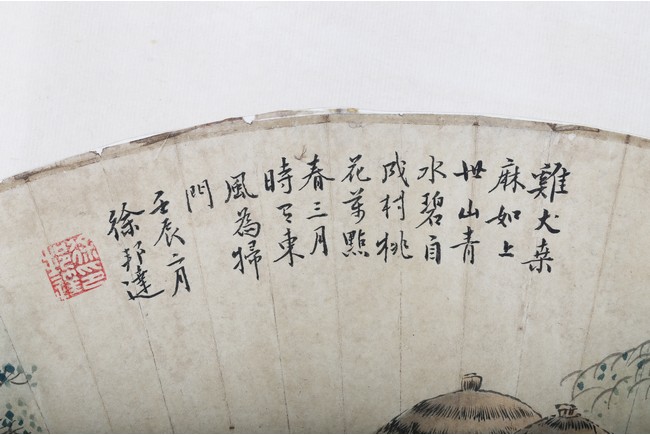 雞犬桑
麻如上
世山青
水碧自
成村桃
花萬點
春三月
時有東
風為掃
門
壬辰二月
徐邦達